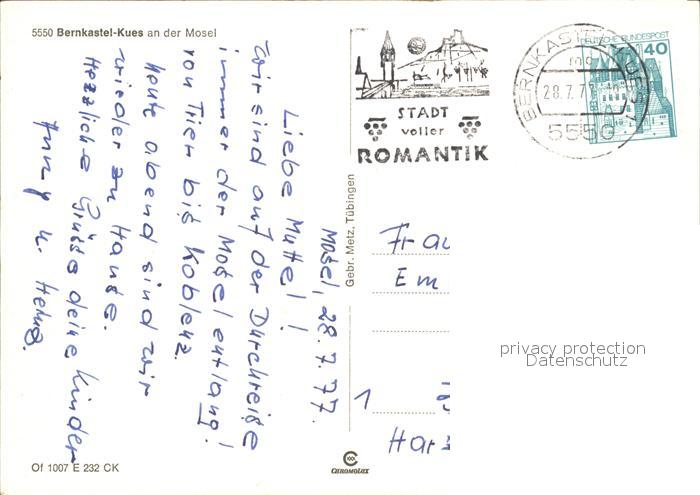 5550 Bernkastel-Kues an der Mosel
Mosel, 28.7.77.
Liebe Muttel!
Wir sind auf der Durchreise
immer der Mosel entlang!
von Trier bis Koblenz.
Heute abend sind wir
wieder zu Hause.
Herzliche Grüße deine Kinder
u.
Of 1007 E 232 CK
Gebr. Metz, Tübingen
CHROMOLUX
STADT
voller
ROMANTIK
28.7.7
5550
DEUTSCHE BUNDESPOST
40
Frau
Em
1
Har
privacy protection
Datenschutz